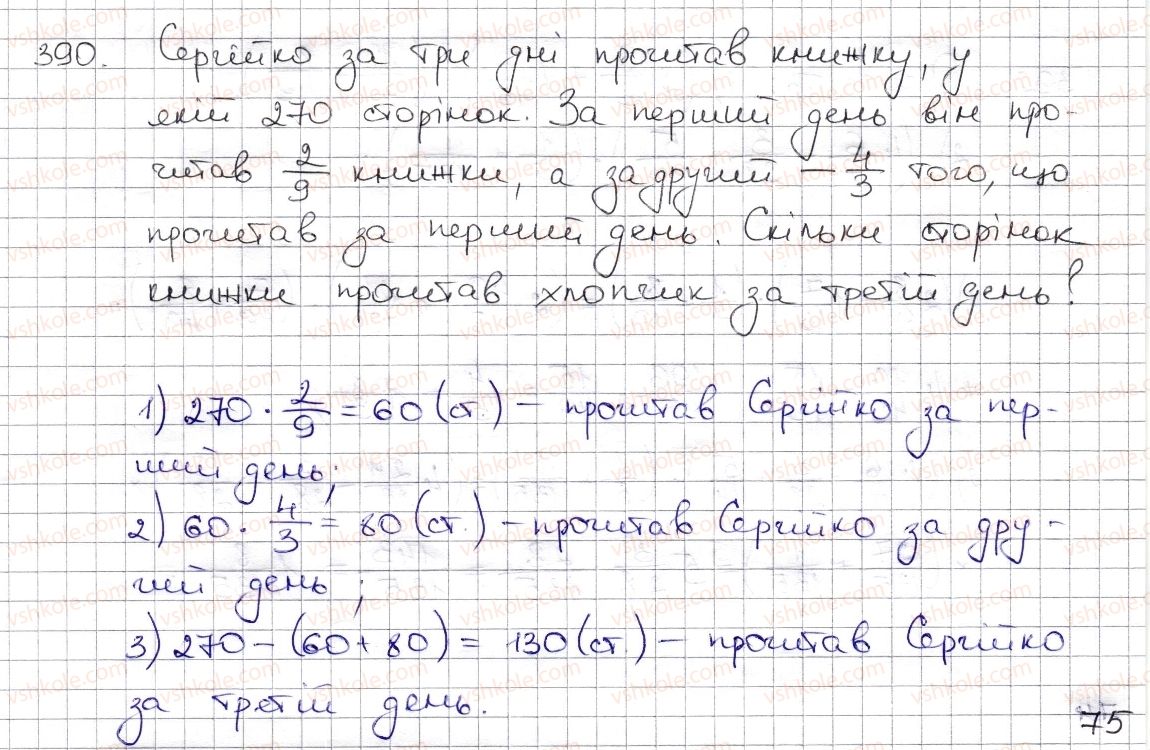 390. Сергійко за три дні прочитав книжку, у
якій 270 сторінок. За перший день він про-
читав 2/9 книжки, а за другий — 4/3 того, що
прочитав за перший день. Скільки сторінок
книжки прочитав хлопчик за третій день?
1) 270 · 2/9 = 60 (ст.) – прочитав Сергійко за пер-
ший день;
2) 60 · 4/3 = 80 (ст.) – прочитав Сергійко за дру-
гий день;
3) 270 – (60 + 80) = 130 (ст.) – прочитав Сергійко
за третій день.
75